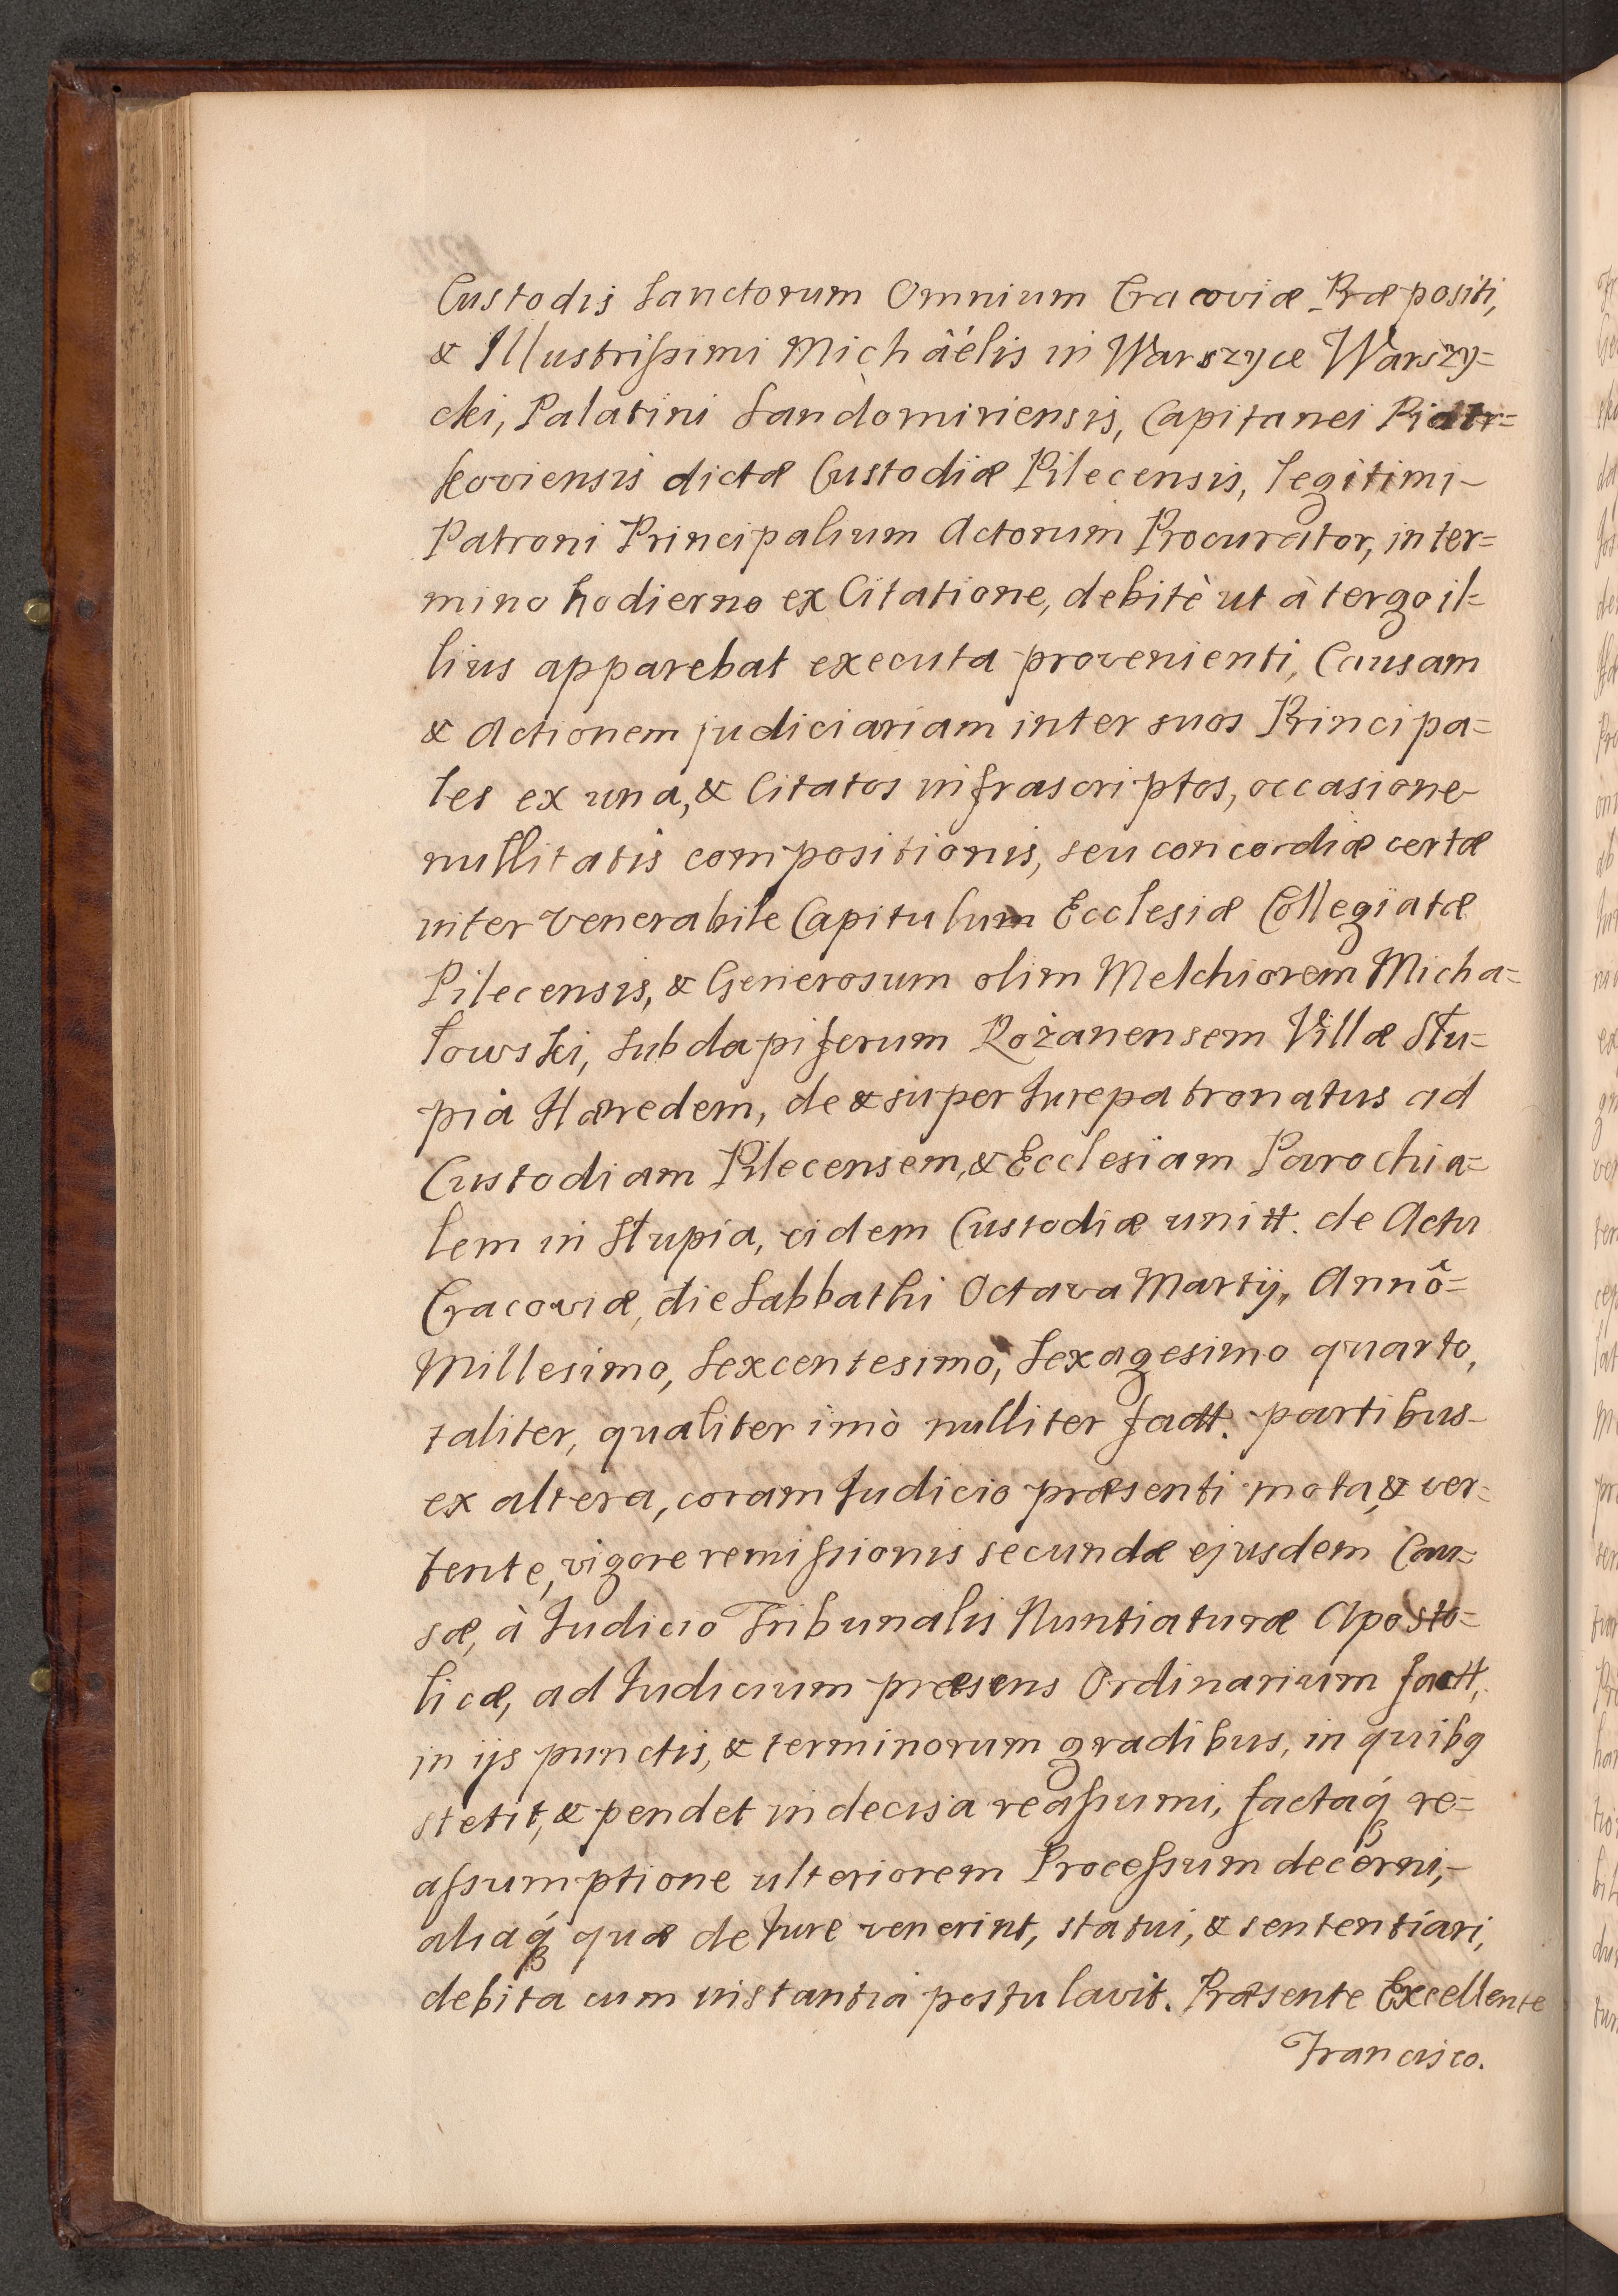 Custodis Sanctorum Omnium Cracoviæ Præpositi,
& Illustrissimi Michâélis in Warszyce Warszy=
cki, Palatini Sandomiriensis, Capitanei Piotr=
koviensis dictæ Custodiæ Pilecensis, legitimi
Patroni Principalium Actorum Procurator, in ter=
mino hodierno ex Citatione, debitè ut à tergo il=
lius apparebat executa provenienti, Causam
& Actionem judiciariam inter suos Principa=
les ex una, & Citatos infrascriptos, occasione
nullitatis compositionis, seu concordiæ certæ
inter Venerabile Capitulum Ecclesiæ Collegiatæ
Pilecensis, & Generosum olim Melchiorem Micha=
łowski, Subdapiferum Rożanensem Villæ Słu=
pia Hæredem, de & super Jurepatronatus ad
Custodiam Pilecensem, & Ecclesiam Parochia=
lem in Słupia, eidem Custodiæ unitt. de Actu
Cracoviæ, die Sabbathi Octava Martij, Annô
Millesimo, Sexcentesimo, Sexagesimo quarto,
taliter, qualiter imò nulliter factt. partibus
ex altera, coram Judicio præsenti mota, & ver=
tente, vigore remissionis secundæ ejusdem Cau=
sæ, à Judicio Tribunalis Nuntiaturæ Aposto=
licæ, ad Judicium præsens Ordinarium factt,
in ijs punctis, & terminorum gradibus, in quibq
stetit, & pendet indecisa reassumi, factaq́ re=
assumptione ulteriorem Processum decerni,
aliaq́ quæ de Jure venerint, statui, & sententiari,
debita cum instantia postulavit. Præsente Excellente
Francisco.